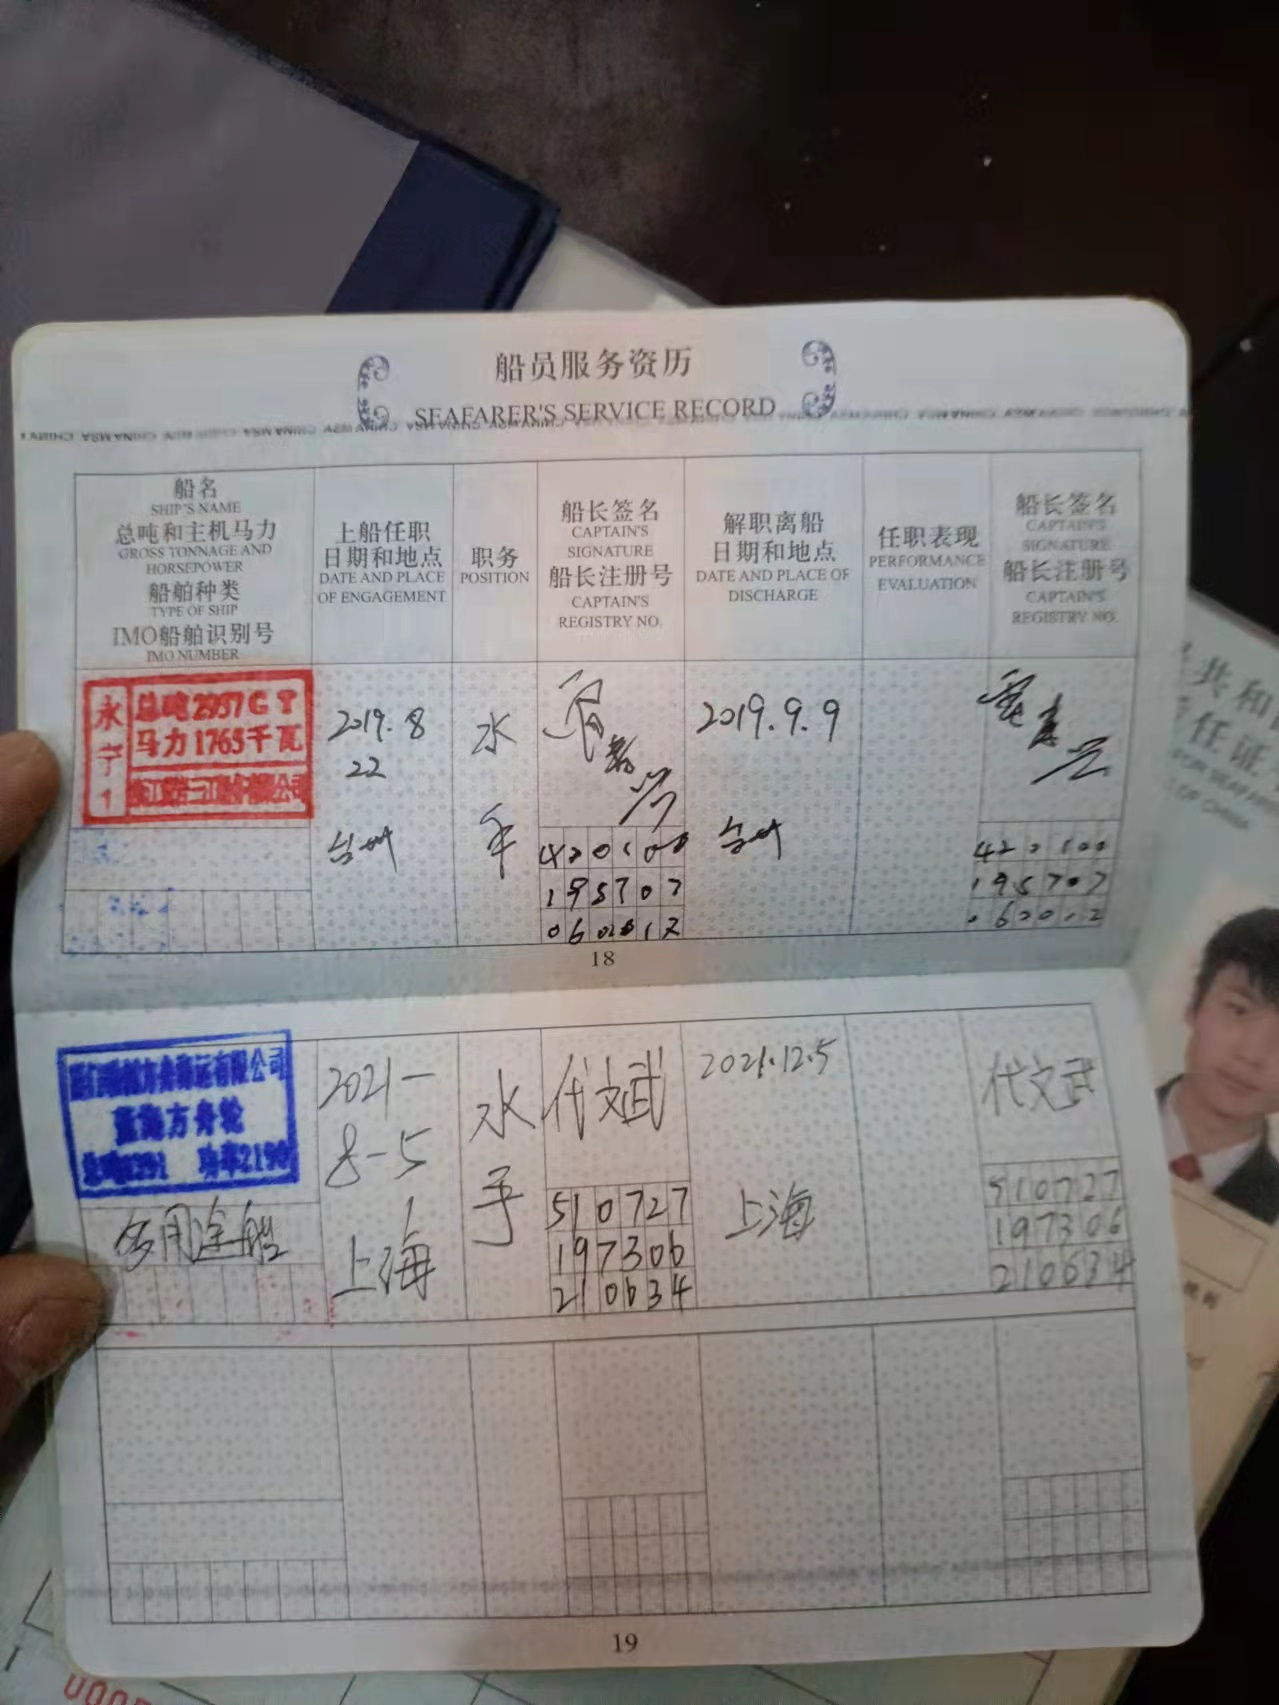 船员服务资历
SEAFARER'S SERVICE RECORD
船名
SHIP'S NAME
总吨和主机马力
GROSS TONNAGE AND
HORSEPOWER
船舶种类
TYPE OF SHIP
IMO船舶识别号
IMO NUMBER
上船任职
日期和地点
DATE AND PLACE
OF ENGAGEMENT
职务
POSITION
船长签名
CAPTAIN'S
SIGNATURE
船长注册号
CAPTAIN'S
REGISTRY NO.
解职离船
日期和地点
DATE AND PLACE OF
DISCHARGE
任职表现
PERFORMANCE
EVALUATION
船长签名
CAPTAIN'S
SIGNATURE
船长注册号
CAPTAIN'S
REGISTRY NO.
永宁1
总吨2937GT
马力1765千瓦
2019.8
22
台州
水
手
420100
195707
2019.9.9
台州
420100
195707
18
蓝海方舟轮
多用途船
2021-
8-5
上海
水
手
代文武
510727
197306
210634
2021.12.5
上海
代文武
510727
197306
210634
19
共和
任证